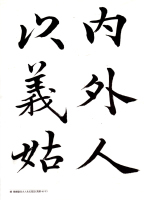 内外人
以義姑